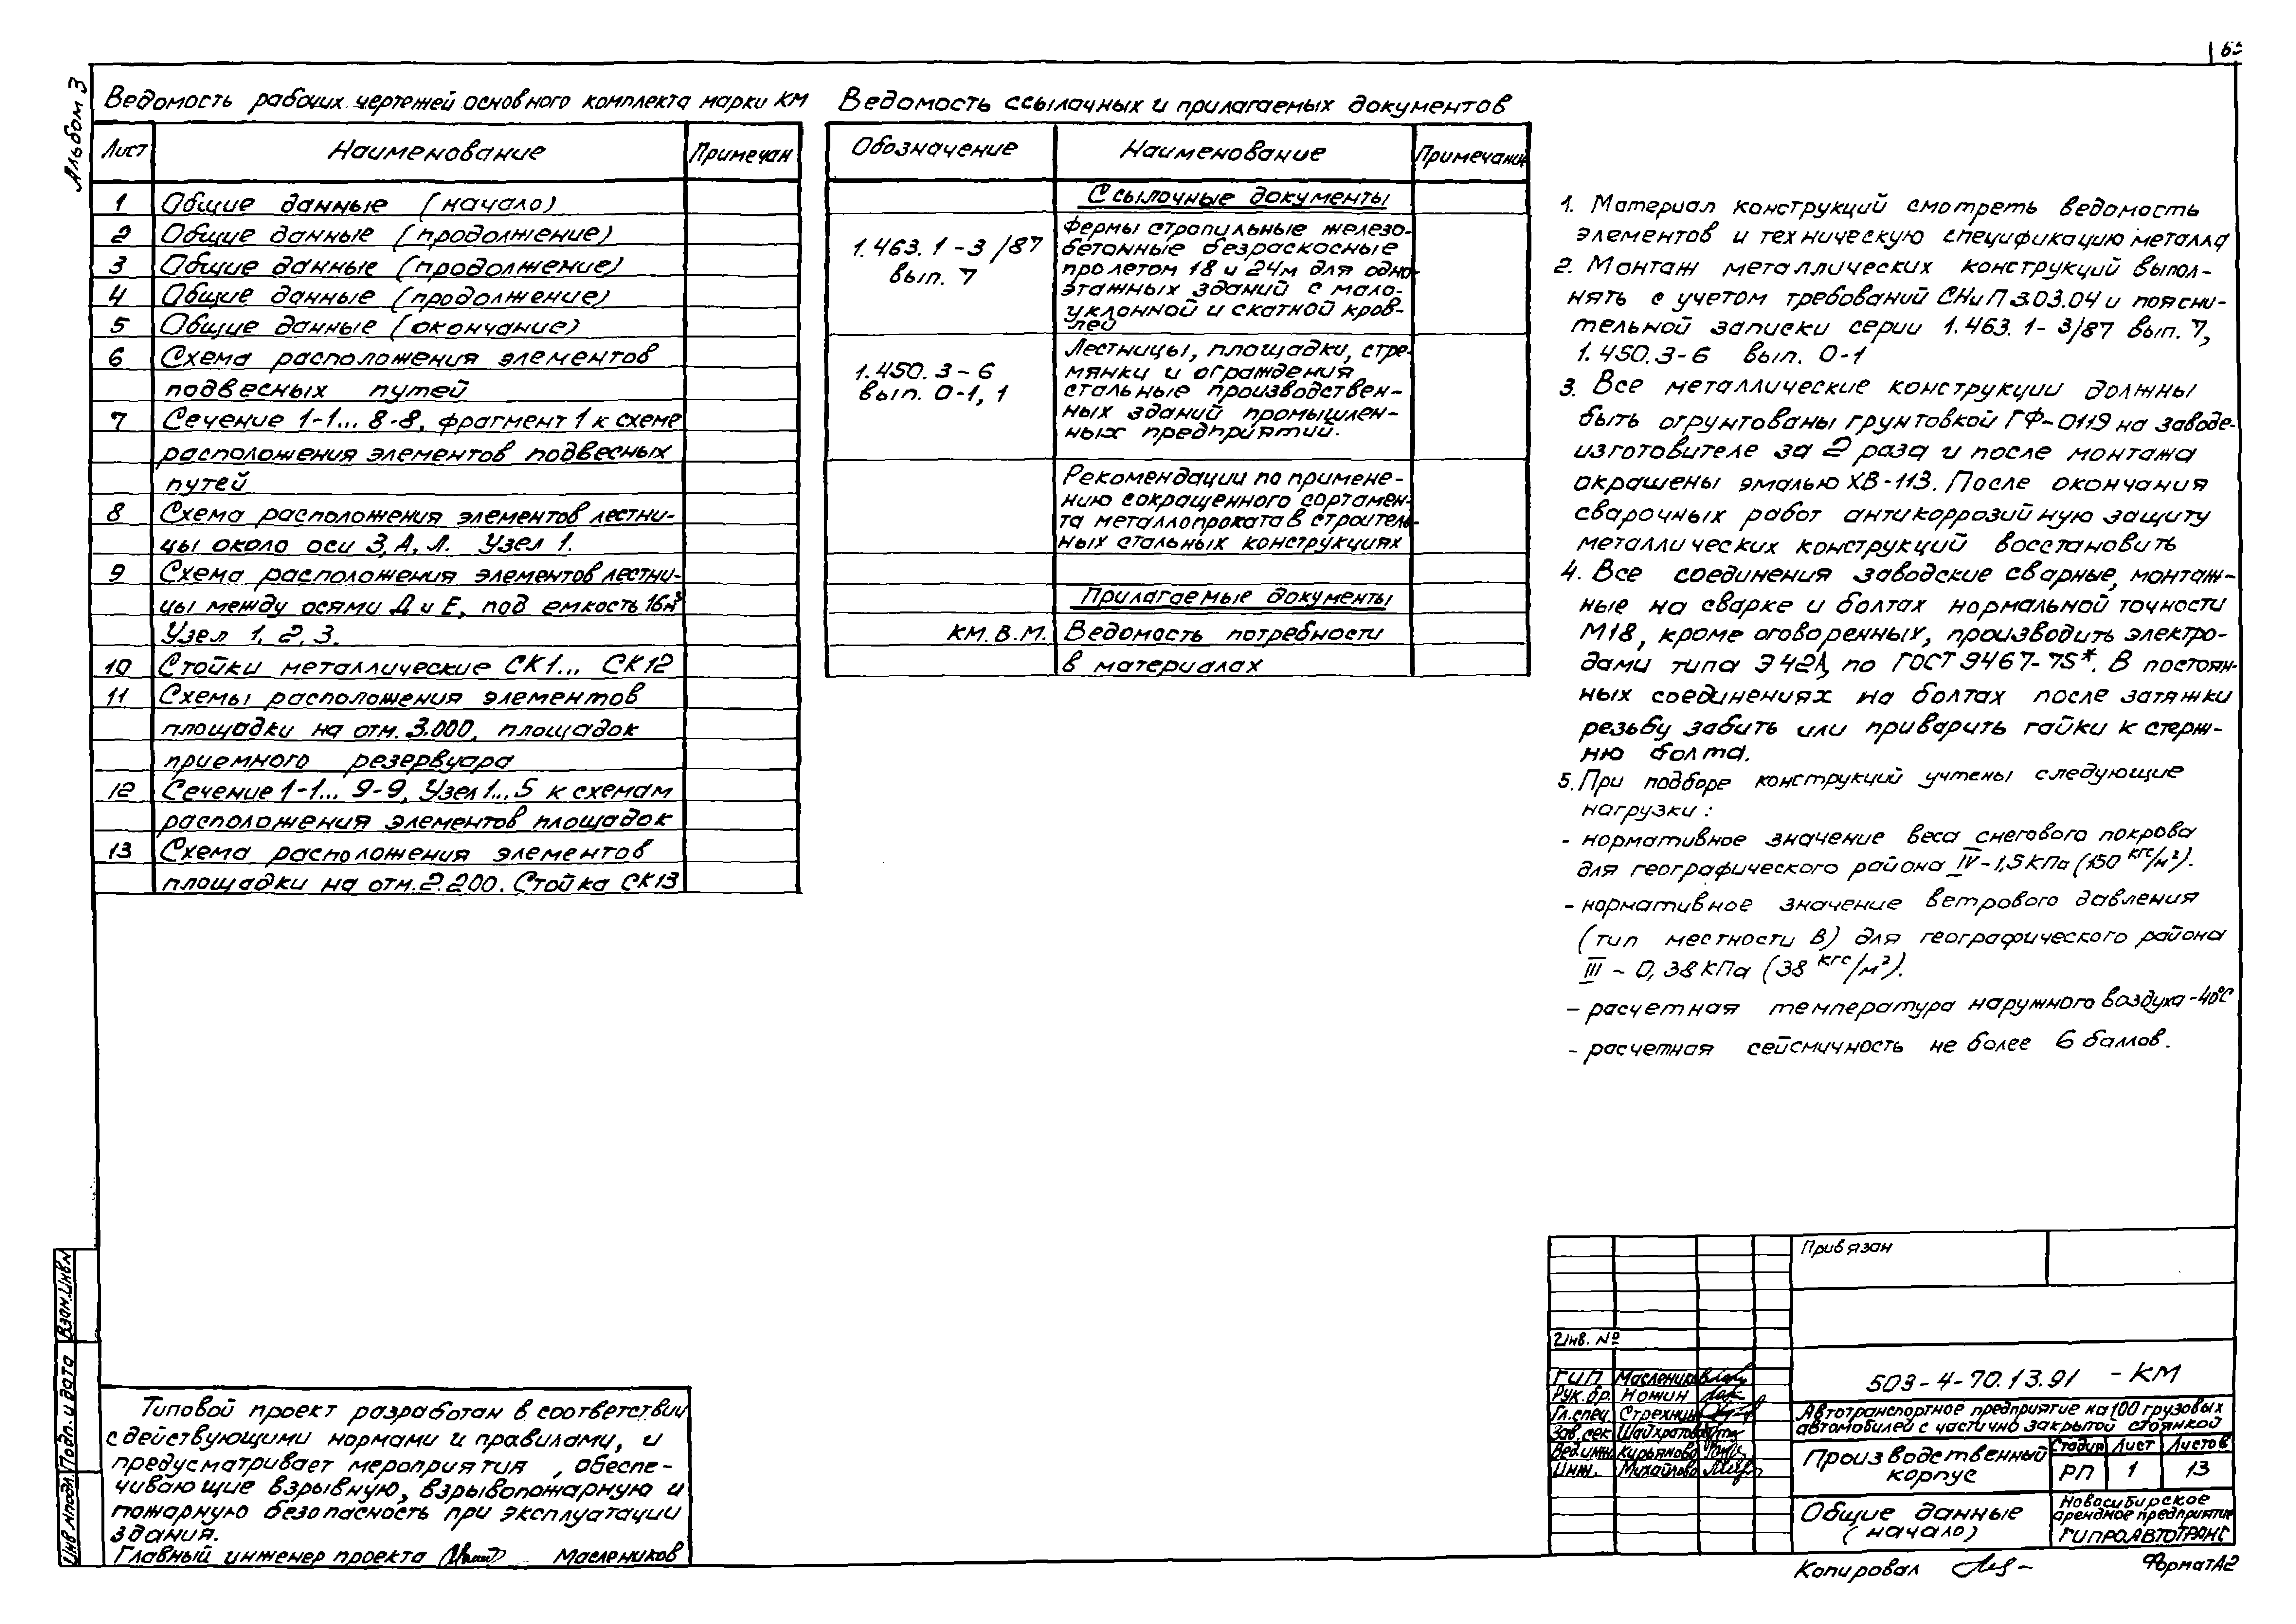 Альбом 3
Ведомость рабочих чертежей основного комплекта марки КМ
Лист Наименование Примечан
1 Общие данные (начало)
2 Общие данные (продолжение)
3 Общие данные (продолжение)
4 Общие данные (продолжение)
5 Общие данные (окончание)
6 Схема расположения элементов
подвесных путей
7 Сечение 1-1... 8-8, фрагмент 1 к схеме
расположения элементов подвесных
путей
8 Схема расположения элементов лестни-
цы около оси 3, А, Л. Узел 1.
9 Схема расположения элементов лестни-
цы между осями Д и Е, под емкость 16м³
Узел 1, 2, 3.
10 Стойки металлические СК1... СК12
11 Схемы расположения элементов
площадки на отм. 3.000, площадок
приемного резервуара
12 Сечение 1-1... 9-9, Узел 1...5 к схемам
расположения элементов площадок
13 Схема расположения элементов
площадки на отм. 2.200. Стойка СК13
Ведомость ссылочных и прилагаемых документов
Обозначение Наименование Примечание
Ссылочные документы
1.463.1-3/87
вып. 7
Фермы стропильные железо-
бетонные безраскосные
пролетом 18 и 24м для одно-
этажных зданий с мало-
уклонной и скатной кров-
лей
1.450.3-6
вып. 0-1, 1
Лестницы, площадки, стре-
мянки и ограждения
стальные производствен-
ных зданий промышлен-
ных предприятий.
Рекомендации по примене-
нию сокращенного сортамен-
та металлопроката в строитель-
ных стальных конструкциях
Прилагаемые документы
КМ.В.М. Ведомость потребности
в материалах
1. Материал конструкций смотреть ведомость
элементов и техническую спецификацию металла
2. Монтаж металлических конструкций выпол-
нять с учетом требований СНиП 3.03.04 и поясни-
тельной записки серии 1.463.1-3/87 вып. 7,
1.450.3-6 вып. 0-1
3. Все металлические конструкции должны
быть огрунтованы грунтовкой ГФ-0119 на заводе-
изготовителе за 2 раза и после монтажа
окрашены эмалью ХВ-113. После окончания
сварочных работ антикоррозийную защиту
металлических конструкций восстановить
4. Все соединения заводские сварные, монтаж-
ные на сварке и болтах нормальной точности
М18, кроме оговоренных, производить электро-
дами типа Э42А, по ГОСТ 9467-75*. В постоян-
ных соединениях на болтах после затяжки
резьбу забить или приварить гайки к стерж-
ню болта.
5. При подборе конструкций учтены следующие
нагрузки:
- нормативное значение веса снегового покрова
для географического района IV - 1,5 КПа (150 кгс/м²).
- нормативное значение ветрового давления
(тип местности В) для географического района
III - 0,38 КПа (38 кгс/м²).
- расчетная температура наружного воздуха -40°С
- расчетная сейсмичность не более 6 баллов.
Взам.Инв.N
Подп. и дата
Инв.Nподл.
Типовой проект разработан в соответствии
с действующими нормами и правилами, и
предусматривает мероприятия, обеспе-
чивающие взрывную, взрывопожарную и
пожарную безопасность при эксплуатации
здания.
Главный инженер проекта Маслеников
Привязан
Инв. №
ГИП Маслеников
Рук.бр. Ножин
Гл.спец. Стрехнин
Зав.сек Шайхратов
Вед.инж. Курьянова
Инж. Михайлова
503-4-70.13.91 -КМ
Автотранспортное предприятие на 100 грузовых
автомобилей с частично закрытой стоянкой
Производственный
корпус
Стадия Лист Листов
РП 1 13
Общие данные
(начало)
Новосибирское
арендное предприятие
ГИПРОАВТОТРАНС
Копировал
Формат А2